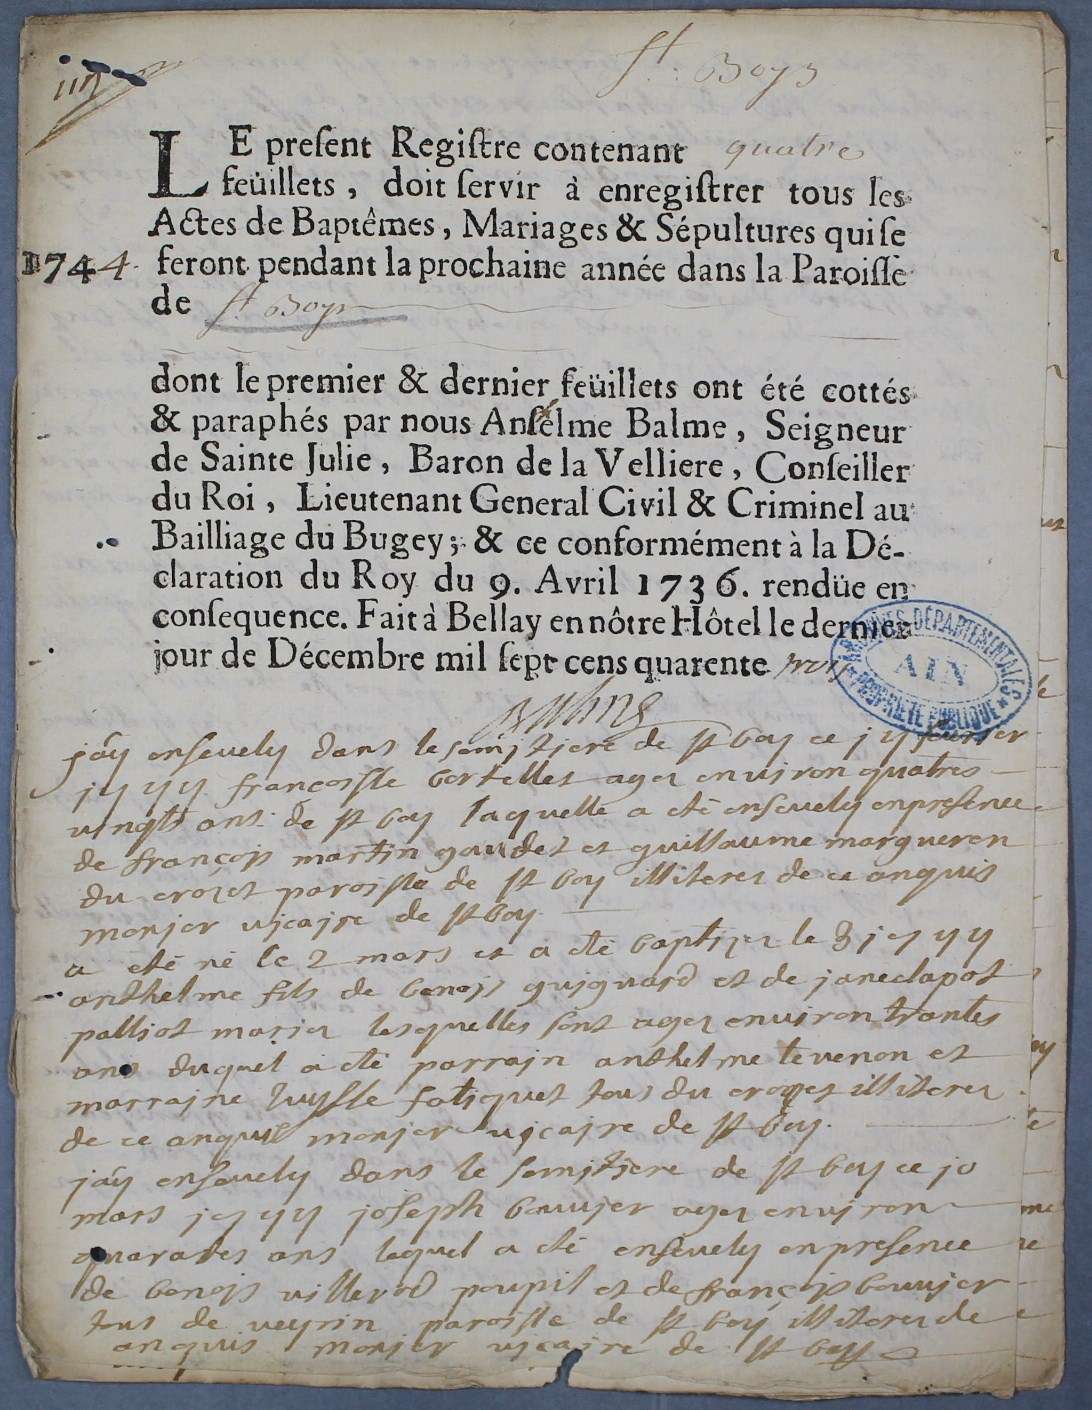 St. Boys
LE preſent Regiſtre contenant quatre
feüillets, doit ſervir à enregiſtrer tous les
Actes de Baptêmes, Mariages & Sépultures qui ſe
1744. feront pendant la prochaine année dans la Paroiſſe
de St Boys
dont le premier & dernier feüillets ont été cottés
& paraphés par nous Anſelme Balme, Seigneur
de Sainte Julie, Baron de la Velliere, Conſeiller
du Roi, Lieutenant General Civil & Criminel au
Bailliage du Bugey; & ce conformément à la Dé-
claration du Roy du 9. Avril 1736. rendüe en
conſequence. Fait à Bellay en nôtre Hôtel le dernier
jour de Décembre mil ſept cens quarente trois
ARCHIVES DÉPARTEMENTALES
AIN
* PROPRIÉTÉ PUBLIQUE *
Balme
j'ay ensevely dans le semitiere de st boy ce
francoisse bertellet agez environ quatres
vingts ans de st boy laquelle a eté ensevely enpresence
de françois martin goudet et guillaume margueron
du crozet paroisse de st boy illiterez de ce anquis
monjer vicaire de st boy
a eté né le 2 mars et a eté baptizez le 3
anthelme fils de benois guiguard et de jane clapot
palliot mariez lesquelles sont agez environ trantes
ans duquel a eté parrain anthelme tevenon et
marraine tous du crozet illiterez
de ce anquis monjer vicaire de st boy.
j'ay ensevely dans le semitiere de st boy ce jo
mars joseph bouvjer agez environ
quarantes ans lequel a eté ensevely enpresence
de benois villerod poupil et de françois bouvjer
tous de veyrin paroisse de st boy illiterez de
anquis monjer vicaire de st boy